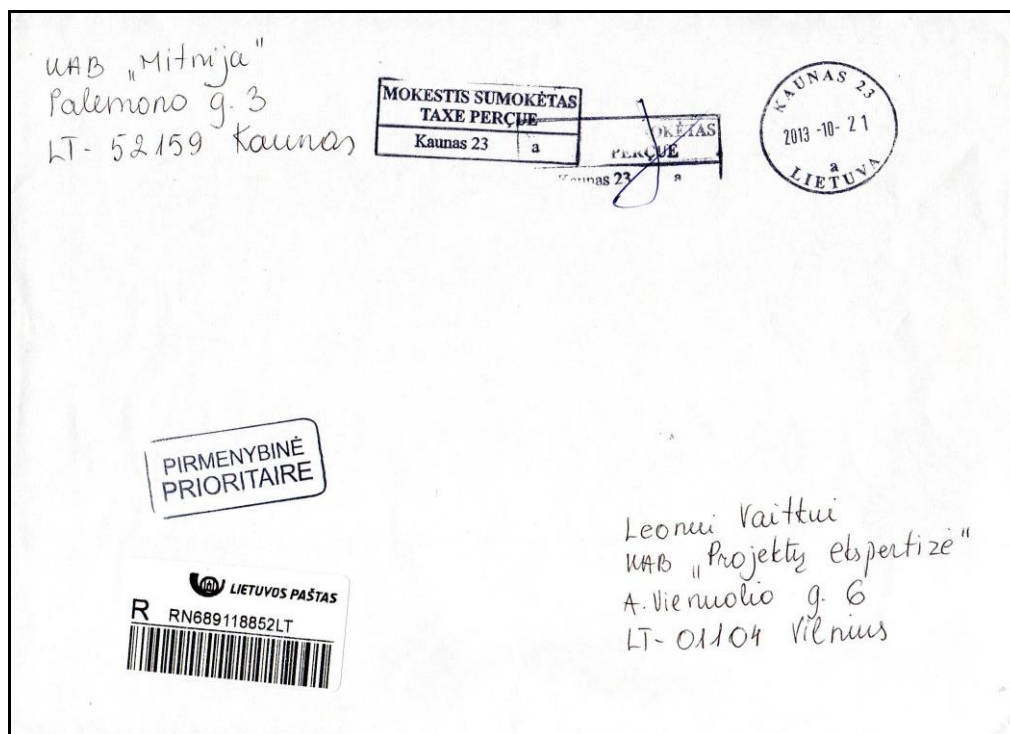 UAB „Mitnija"
Palemono g. 3
LT-52159 Kaunas
MOKESTIS SUMOKĖTAS
TAXE PERÇUE
Kaunas 23 a
OKĖTAS
PERÇUE
Kaunas 23 a
KAUNAS 23
2013-10-21
a
LIETUVA
PIRMENYBINĖ
PRIORITAIRE
LIETUVOS PAŠTAS
R RN689118852LT
Leonui Vaitkui
UAB „Projektų ekspertizė"
A. Vienuolio g. 6
LT-01104 Vilnius